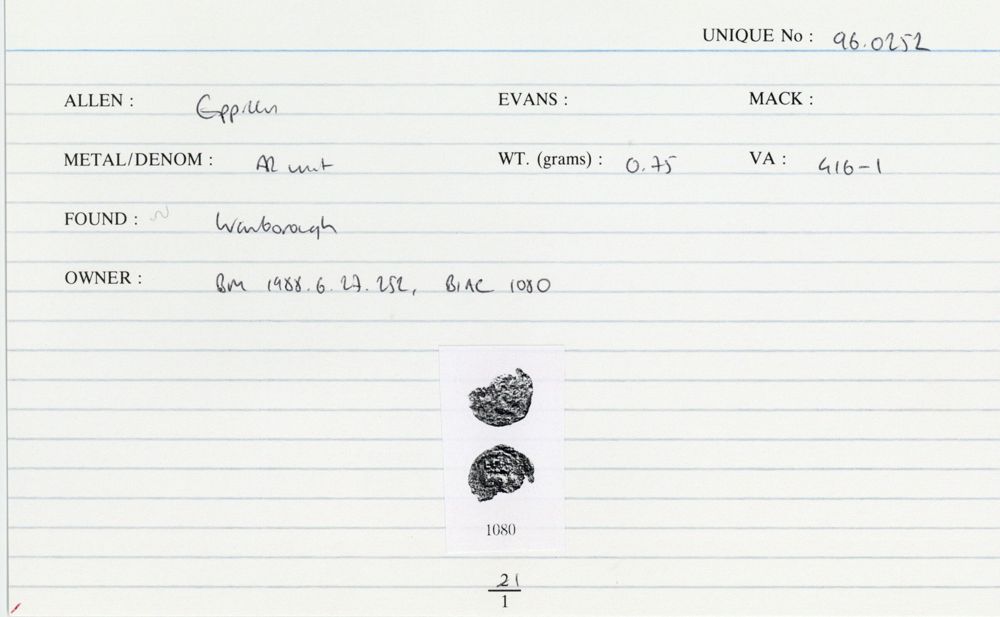 UNIQUE No : 96.0252
ALLEN : Eppillus EVANS : MACK :
METAL/DENOM : AR unit WT. (grams) : 0.75 VA : 416-1
FOUND : Wanborough
OWNER : BM 1988.6.27.252, BIAC 1080
1080
21
1